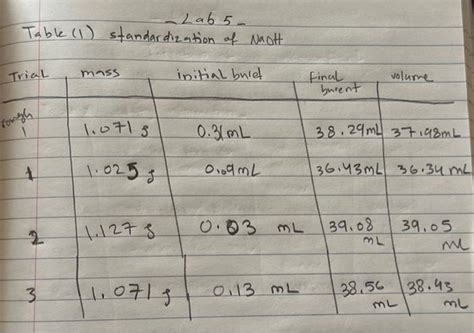 Lab 5
Table (1) standardization of NaOH
Trial mass initial buret Final burent volume
rough 1 1.071 g 0.31mL 38.29mL 37.98mL
1 1.025 g 0.09mL 36.43mL 36.34mL
2 1.127 g 0.03 mL 39.08 mL 39.05 mL
3 1.071 g 0.13 mL 38.56 mL 38.43 mL